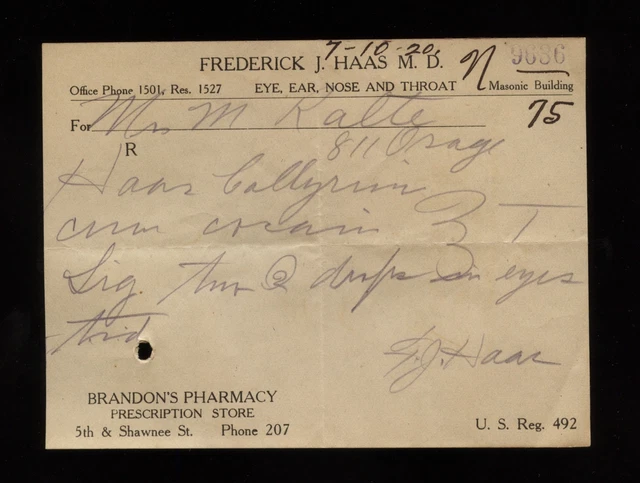 7-10-20
FREDERICK J. HAAS M. D.
9686
Office Phone 1501, Res. 1527 EYE, EAR, NOSE AND THROAT Masonic Building
75
For Mrs M Kalte
811 Osage
R
Haas Collyrium
cum cocain ʒ I
Sig. two 2 drops in eyes
tid
F. J. Haas
BRANDON'S PHARMACY
PRESCRIPTION STORE
5th & Shawnee St. Phone 207
U. S. Reg. 492